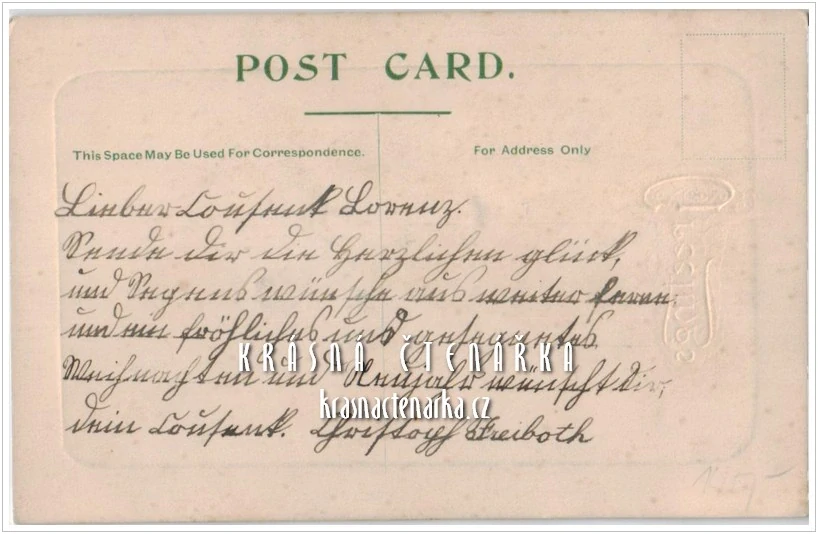 POST CARD.
This Space May Be Used For Correspondence.
For Address Only
Lieber Cousenk Lorenz.
Sende dir die Herzlichen glück,
und Segens wünsche aus weiter ferne.
und ein fröhliches und gesegnetes
KRÁSNÁ ČTENÁŘKA
Weihnachten und Neujahr wünscht dir,
krasnactenarka.cz
dein Cousenk. Christoph Freiboth